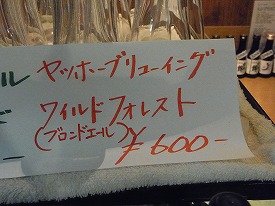 ル ヤッホーブリューイング
ワイルドフォレスト
(ブロンドエール) ¥600-